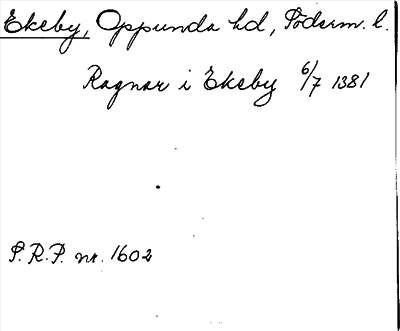 Ekeby, Oppunda hd, Söderm. l.
Ragnar i Ekeby 6/7 1381
S.R.P. nr. 1602